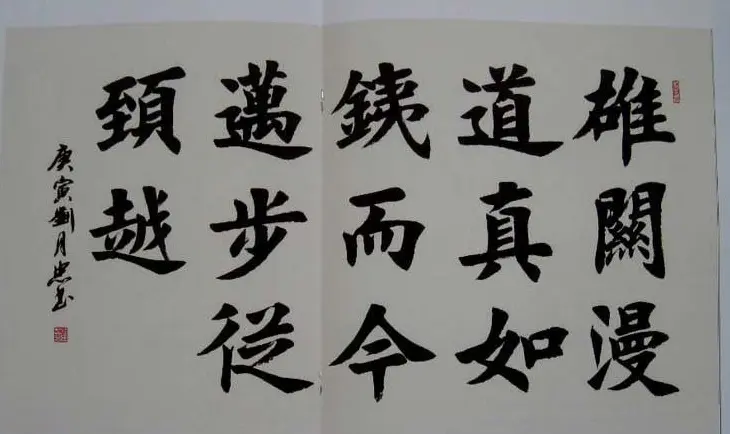 雄關漫
道真如
銕而今
邁步從
頭越
庚寅劉月忠书